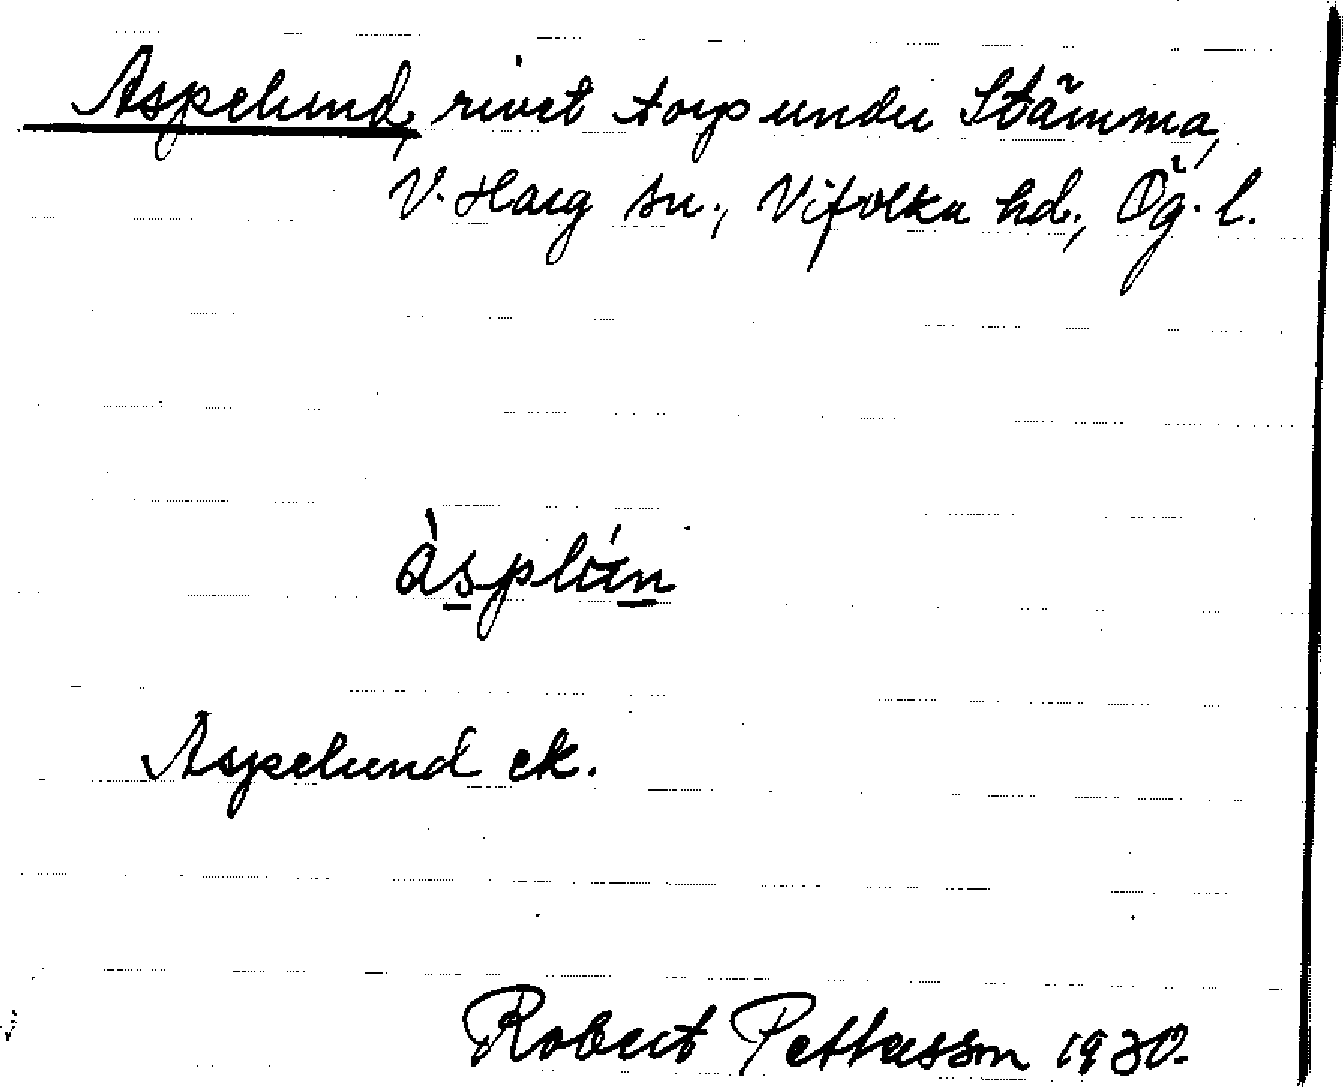 Aspelund, rivet torp under Stämma,
V. Harg sn., Vifolka hd., Ög. l.
Aspelund ek.
Robert Pettersson 1930.